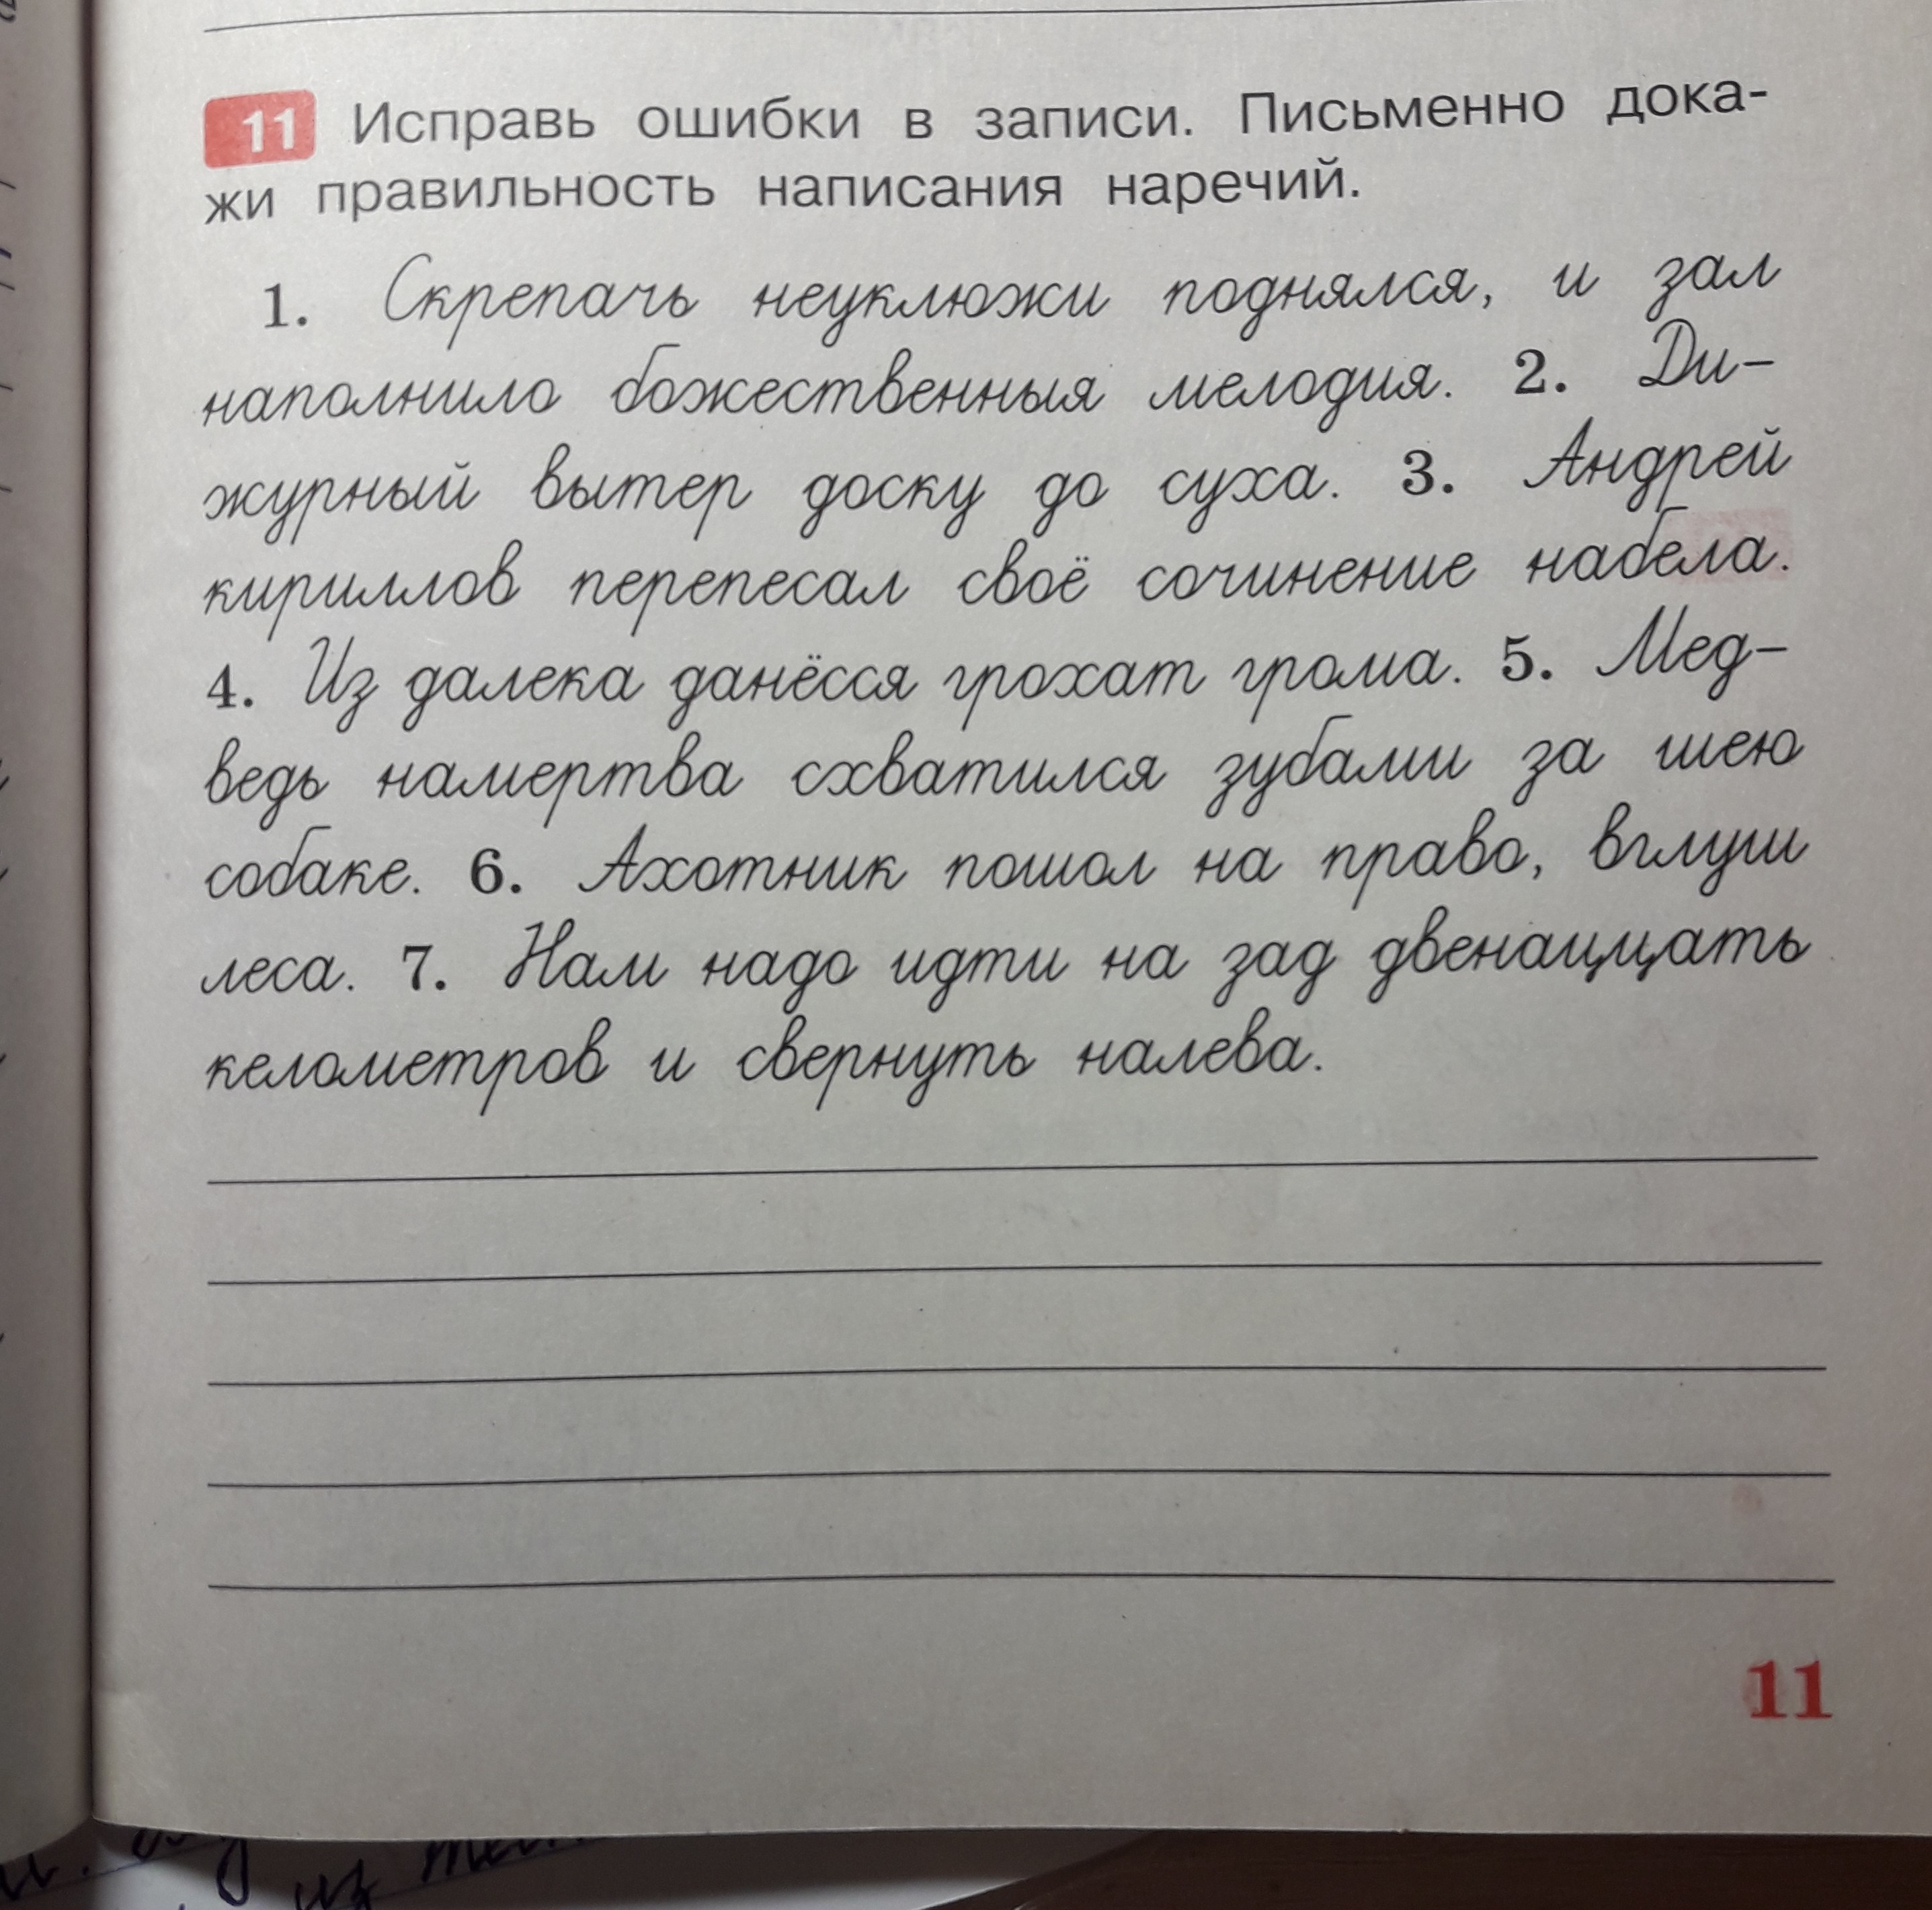 11 Исправь ошибки в записи. Письменно дока-
жи правильность написания наречий.
1. Скрепачь неуклюжи поднялся, и зал
наполнило божественныя мелодия. 2. Ди-
журный вытер доску до суха. 3. Андрей
кириллов перепесал своё сочинение набела.
4. Из далека данёсся грохат грома. 5. Мед-
ведь намертва схватился зубами за шею
собаке. 6. Ахотник пошол на право, вглуши
леса. 7. Нам надо идти на зад двенаццать
келометров и свернуть налева.
11
из